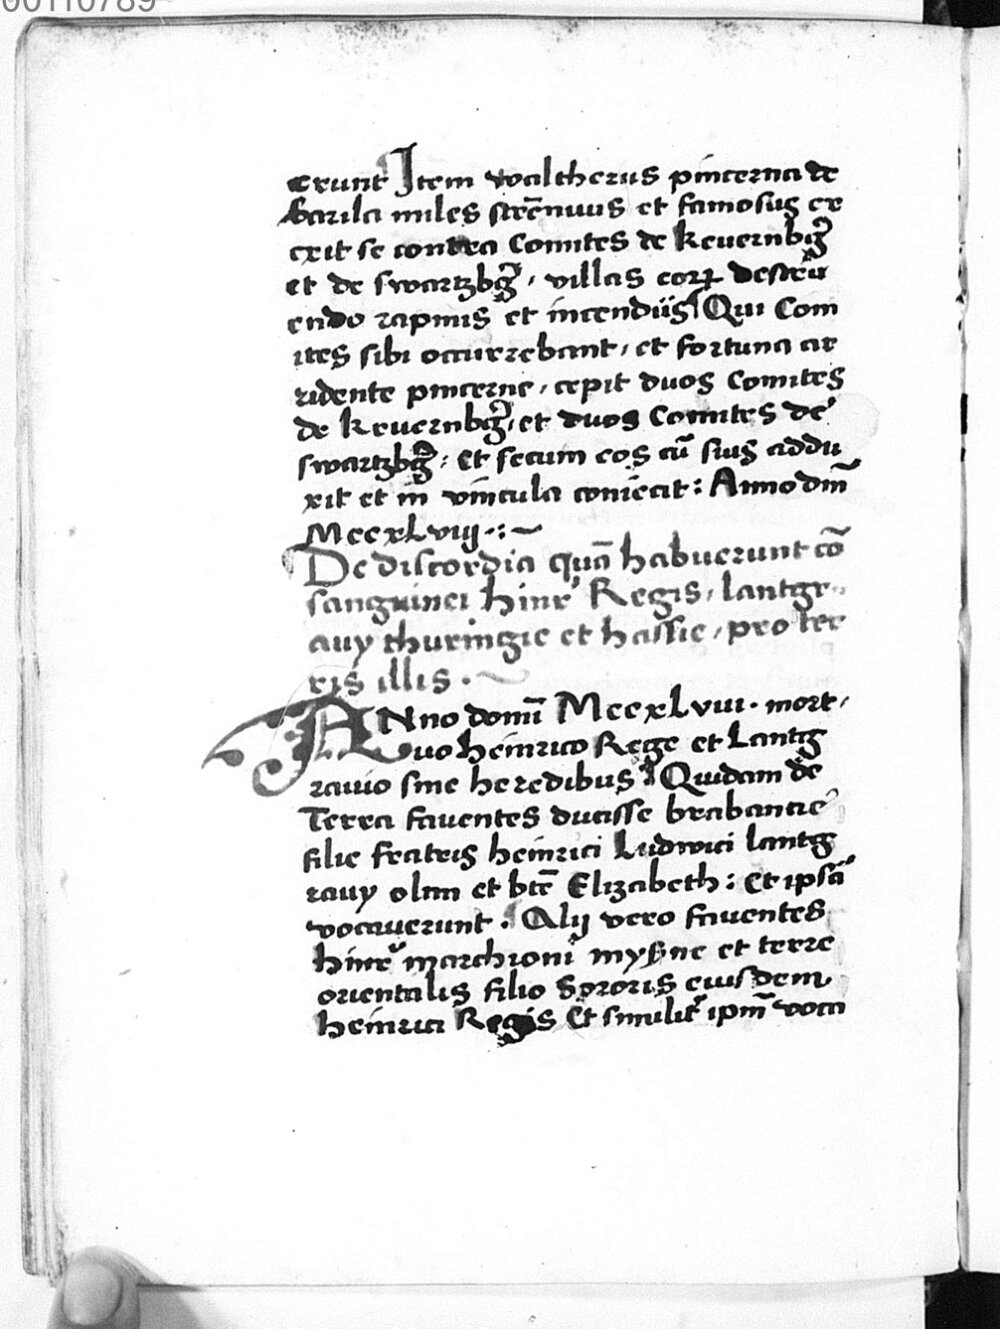 00110789
erunt Item waltherus pincerna de
barila miles stre͞nuus et famosus er
exit se contra Comites de keuernbg̃
et de swartzbg̃, villas eoꝝ destru
endo rapinis et incendiis Qui Com
ites sibi occurrebant, et fortuna ar
ridente pincerne, cepit duos Comites
de keuernbg̃, et duos Comites de
swartzbg̃: Et secum eos cū suis addu
xit et in vincula coniecit: Anno dm̄
MccxLviij ·:~
De discordia quā habuerunt cō
sanguinei hinr̕ Regis, lantgr
auy thuringie et hassie, pro ter
ris illis . ~
ANno domī MccxLviii. mort,
uo heinrico Rege et Lantg
rauio sine heredibus Quidam de
Terra fauentes ducisse brabancie
filie fratris heinrici Ludwici lantg
rauy olim et btē Elizabeth: Et ipsā
vocauerunt. Alij vero fauentes
hinr̕ marchioni myßne et terre
orientalis filio Sororis eiusdem
heinrici Regis Et similit̕ ipm̄ voca